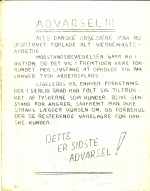 ADVARSEL!!!
ALLE DANSKE ARBEJDERE MAA NU
UFORTØVET FORLADE ALT VÆRNEMAGTS-
ARBEJDE.
MODSTANDSBEVÆGELSEN GAAR NU I
AKTION, OG DET VIL I FREMTIDEN VÆRE FOR-
BUNDET MED LIVSFARE AT OPHOLDE SIG PAA
TYSK ARBEJDSPLADS.
LIGELEDES VIL ENHVER FORRETNING,
DER I SÆRLIG GRAD HAR FØLT SIG TILTRUK-
KET AF TYSKERNE SOM KUNDER, BLIVE GEN-
STAND FOR ANGREB, SAAFREMT MAN IKKE
STRAKS LÆGGER KURSEN OM, OG FORBEHOL-
DER DE RESTERENDE VARELAGRE FOR DAN-
SKE KUNDER.
DETTE
ER SIDSTE
ADVARSEL!